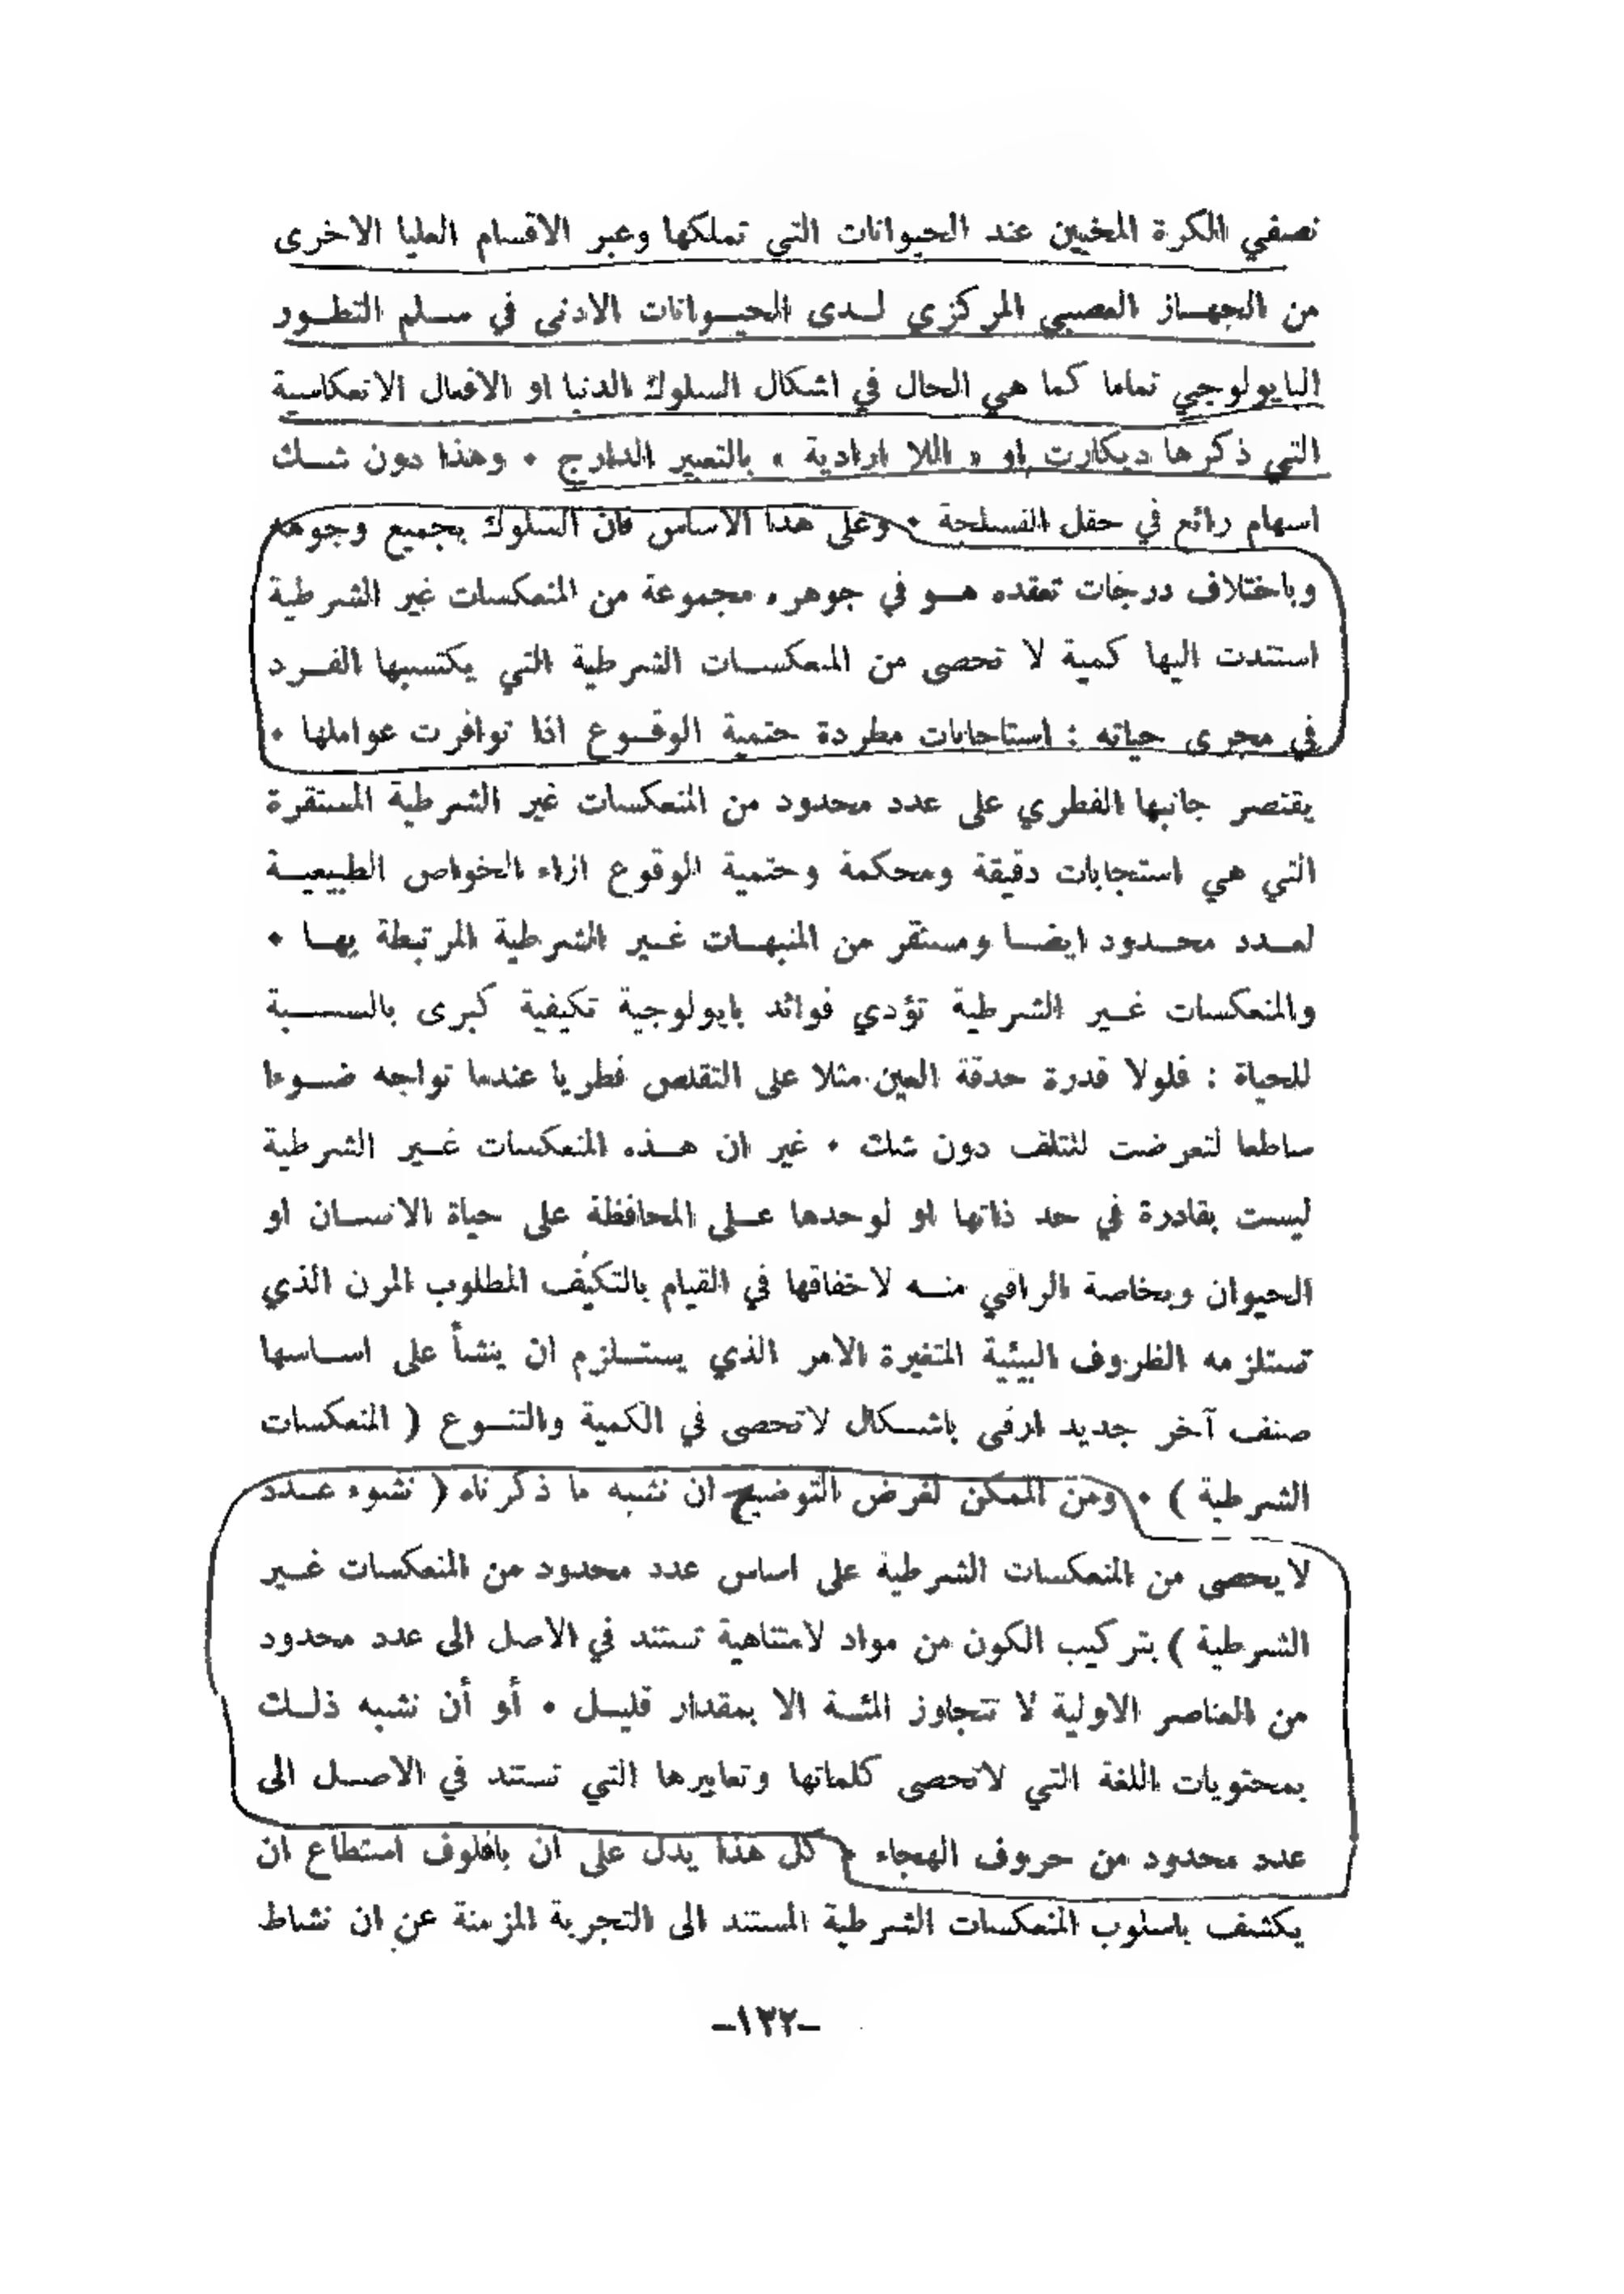 نصفي الكرة المخيين عند الحيوانات التي تملكها وعبر الاقسام العليا الاخرى
من الجهـاز العصبي المركزي لـدى الحيـوانات الادنى في سـلم التطـور
البايولوجي تماما كما هي الحال في اشكال السلوك الدنيا او الافعال الانعكاسية
التي ذكرها ديكارت او « اللا ارادية » بالتعبير الدارج ٠ وهذا دون شـك
اسهام رائع في حقل الفسلجة ٠ وعلى هذا الاساس فان السلوك بجميع وجوهه
وباختلاف درجات تعقده هـو في جوهره مجموعة من المنعكسات غير الشرطية
استندت اليها كمية لا تحصى من المنعكسـات الشرطية التي يكتسبها الفـرد
في مجرى حياته : استاجابات مطردة حتمية الوقـوع اذا توافرت عواملها ٠
يقتصر جانبها الفطري على عدد محدود من المنعكسات غير الشرطية المستقرة
التي هي استجابات دقيقة ومحكمة وحتمية الوقوع ازاء الخواص الطبيعيـة
لعـدد محـدود ايضـا ومستقر من المنبهـات غـير الشرطية المرتبطة بهـا ٠
والمنعكسات غـير الشرطية تؤدي فوائد بايولوجية تكيفية كبرى بالنسـبة
للحياة : فلولا قدرة حدقة العين مثلا على التقلص فطريا عندما تواجه ضـوءا
ساطعا لتعرضت للتلف دون شك ٠ غير ان هـذه المنعكسات غـير الشرطية
ليست بقادرة في حد ذاتها او لوحدها عـلى المحافظة على حياة الانسـان او
الحيوان وبخاصة الراقي منـه لاخفاقها في القيام بالتكيف المطلوب المرن الذي
تستلزمه الظروف البيئية المتغيرة الامر الذي يستـلزم ان ينشأ على اسـاسها
صنف آخر جديد ارقى باشـكال لاتحصى في الكمية والتنـوع ( المنعكسات
الشرطية ) ٠ ومن الممكن لغرض التوضيح ان نشبه ما ذكرناه ( نشوء عـدد
لايحصى من المنعكسات الشرطية على اساس عدد محدود من المنعكسات غـير
الشرطية ) بتركيب الكون من مواد لامتناهية تستند في الاصل الى عدد محدود
من العناصر الاولية لا تتجاوز المئـة الا بمقدار قليـل ٠ أو أن نشبه ذلـك
بمحتويات اللغة التي لاتحصى كلماتها وتعابيرها التي تستند في الاصـل الى
عدد محدود من حروف الهجاء ٠ كل هذا يدل على ان بافلوف استطاع ان
يكشف باسلوب المنعكسات الشرطية المستند الى التجربة المزمنة عن ان نشاط
-١٣٢-